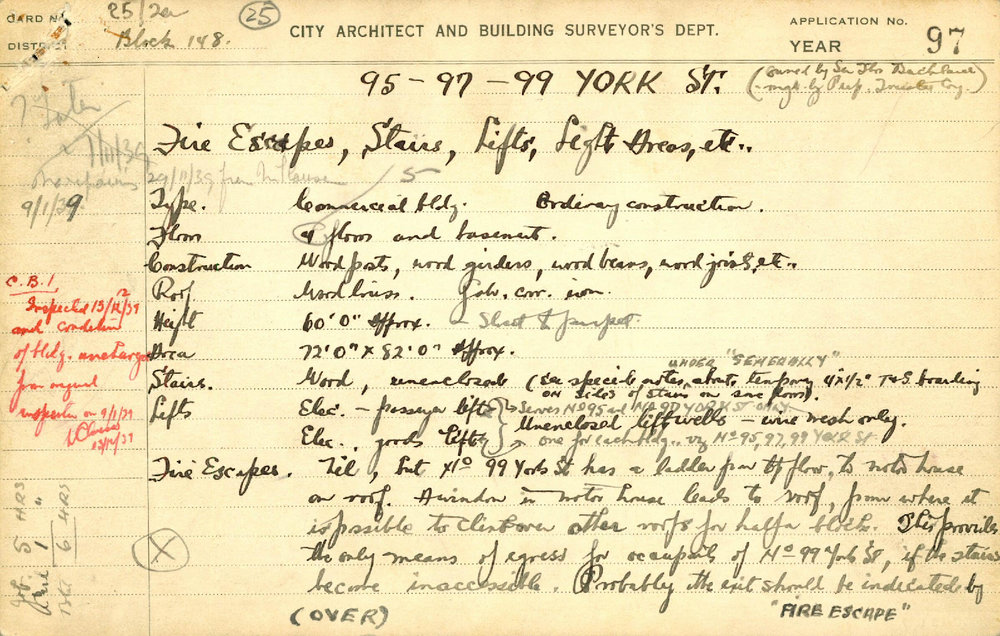 CARD No 25/2a
25
CITY ARCHITECT AND BUILDING SURVEYOR'S DEPT.
APPLICATION No.
DISTRICT Block 148.
YEAR 97
95-97-99 YORK ST.
(owned by Sir Thos
mngd by Perp. Trustee Coy.)
9/1/39
Fire Escapes, Stairs, Lifts, Light Areas, etc..
29/11/39 from
5
Type. Commercial bldg. Ordinary construction.
Floors 4 floors and basement.
Construction Wood posts, wood girders, wood beams, wood joists, etc..
Roof Wood truss. Galv. corr. iron.
Height 60'0" Approx. - Street to parapet.
Area 72'0" x 82'0" Approx.
UNDER "GENERALLY"
Stairs. Wood, unenclosed (See special notes about temporary 4"x1/2" T&G boarding
on sides of stairs on some floors).
Lifts Elec. - passenger lifts Serves No 95 and No 97 YORK ST ONLY
Unenclosed lift wells - wire mesh only.
Elec. goods lifts one for each bldg. viz No 95, 97, 99 York St.
Fire Escapes. Nil, but No 99 York St has a ladder from top floor, to motor house
on roof. A window in motor house leads to roof, from where it
is possible to climb over other roofs for half a block. This provides
the only means of egress for occupants of No 99 York St, if the stairs
become inaccessible. Probably the exit should be indicated by
(OVER)
"FIRE ESCAPE"
C.B.I.
Inspected 13/12/39
and condition
of bldg. unchanged
from original
inspection on 9/1/39
13/12/39
5 HRS
1 "
6 HRS
X